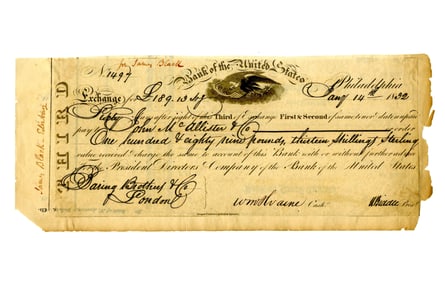 for James Black
Bank of the United States
No. 1497
Philadelphia
Exchange for £189.13 Stg
Jany 14th 1832
THIRD
Sixty days after sight of this Third of Exchange First & Second of same tenor & date unpaid
pay to John McAllister & Co or order
One hundred & eighty nine pounds, thirteen Shillings Sterling
value received & charge the same to account of this Bank with or without further advice
President Directors & Company of the Bank of the United States
To
Baring Brothers & Co
London
Cashr
Prest
James Black